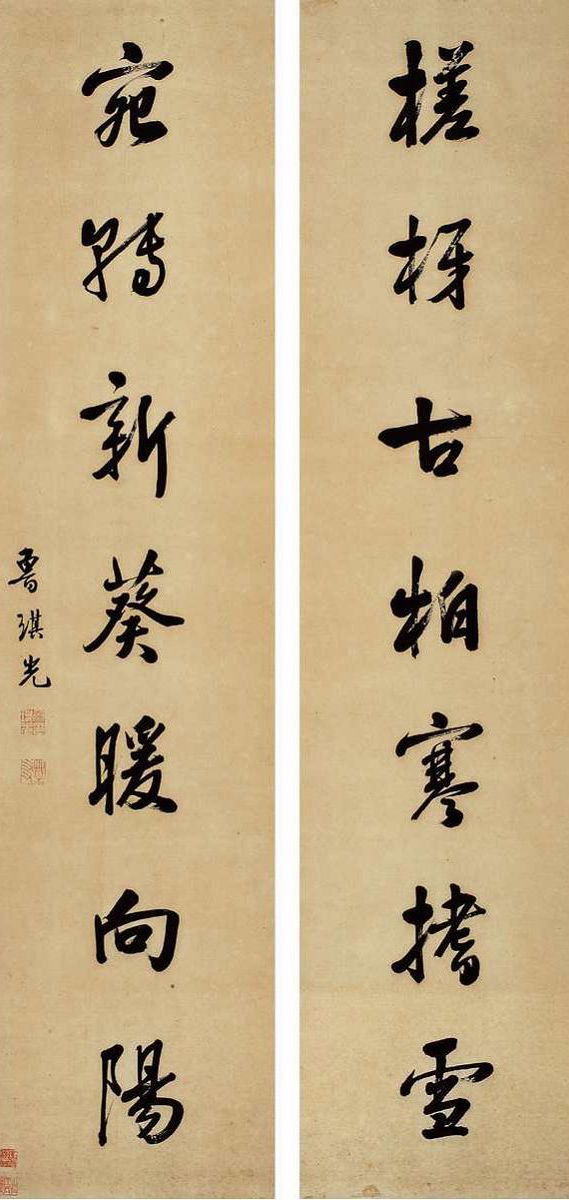 槎枒古柏寒撐雪
宛轉新葵暖向陽
魯琪光